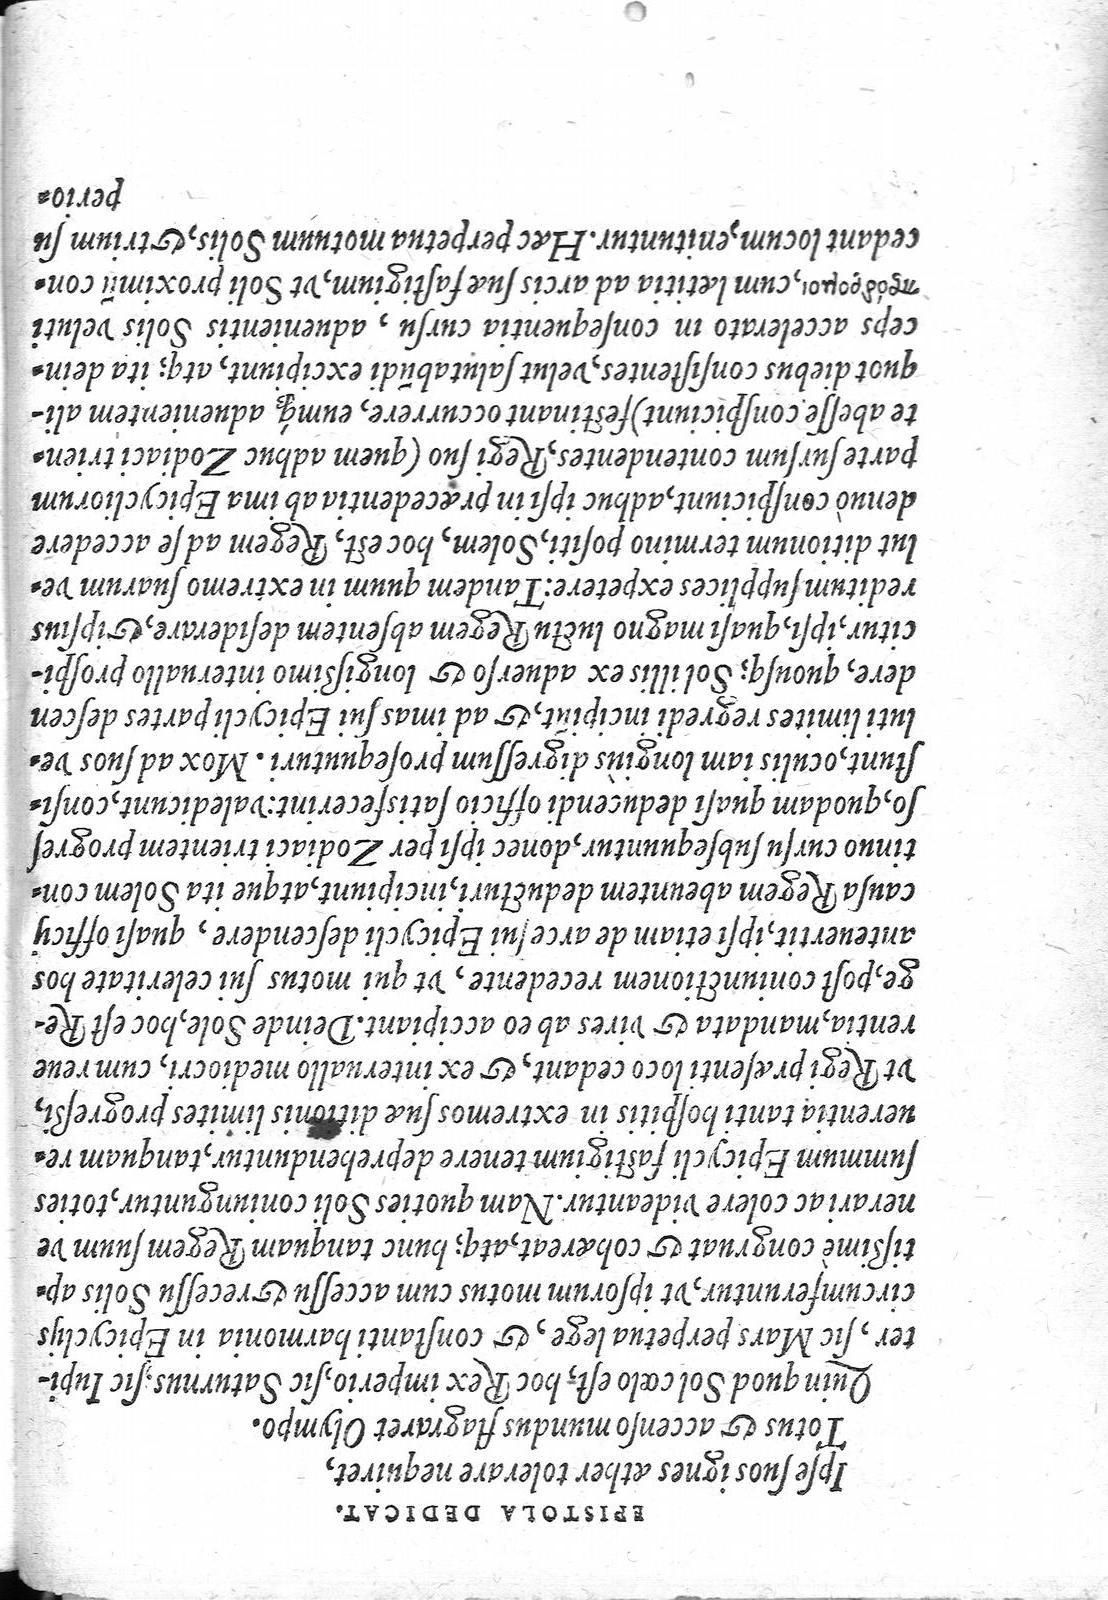 EPISTOLA DEDICAT.
Ipſe ſuos ignes æther tolerare nequiret,
Totus & accenſo mundus flagraret Olympo.
Quin quod Sol cœlo eſt, hoc Rex imperio, ſic Saturnus, ſic Iupi-
ter, ſic Mars perpetua lege, & conſtanti harmonia in Epicyclis
circumferuntur, vt ipſorum motus cum acceſſu & receſſu Solis ap-
tiſsimè congruat & cohæreat, atq; hunc tanquam Regem ſuum ve
nerari ac colere videantur. Nam quoties Soli coniunguntur, toties
ſummum Epicycli faſtigium tenere deprehenduntur, tanquam re-
uerentia tanti hoſpitis in extremos ſuæ ditionis limites progreſsi,
vt Regi præſenti loco cedant, & ex interuallo mediocri, cum reue
rentia, mandata & vires ab eo accipiant. Deinde Sole, hoc eſt Re-
ge, poſt coniunctionem recedente, vt qui motus ſui celeritate hos
anteuertit, ipſi etiam de arce ſui Epicycli deſcendere, quaſi officij
cauſa Regem abeuntem deducturi, incipiunt, atque ita Solem con-
tinuo curſu ſubſequuntur, donec ipſi per Zodiaci trientem progreſ
ſo, quodam quaſi deducendi officio ſatisfecerint: valedicunt, conſi-
ſtunt, oculis iam longius digreſſum proſequuturi. Mox ad ſuos ve-
luti limites regredi incipiũt, & ad imas ſui Epicycli partes deſcen
dere, quouſq; Sol illis ex aduerſo & longiſsimo interuallo proſpi-
citur, ipſi, quaſi magno luctu Regem abſentem deſiderare, & ipſius
reditum ſupplices expetere: Tandem quum in extremo ſuarum ve-
lut ditionum termino poſiti, Solem, hoc eſt, Regem ad ſe accedere
denuò conſpiciunt, adhuc ipſi in præcedentia ab ima Epicycliorum
parte ſurſum contendentes, Regi ſuo (quem adhuc Zodiaci trien-
te abeſſe conſpiciunt) feſtinant occurrere, eumq́; aduenientem ali-
quot diebus conſiſtentes, velut ſalutabũdi excipiunt, atq; ita dein-
ceps accelerato in conſequentia curſu, aduenientis Solis veluti
πρόδρομοι, cum lætitia ad arcis ſuæ faſtigium, vt Soli proximũ con-
cedant locum, enituntur. Hæc perpetua motuum Solis, & trium ſu
perio-